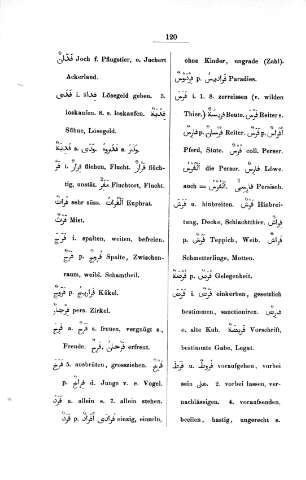 120
فَدَّانٌ Joch f. Pflugstier, o. Juchert
Ackerland.
فَدَى i. فِدَاءٌ Lösegeld geben. 3.
loskaufen. 8. s. loskaufen. فِدْيَةٌ
Sühne, Lösegeld.
فَرَّ i. فِرَارٌ fliehen, Flucht. فَرَّارٌ flüch-
tig, unstät. مَفَرٌّ Fluchtort, Flucht.
فُرَاتٌ sehr süss. الْفُرَاتُ Euphrat.
فَرْثٌ Mist.
فَرَجَ i. spalten, weiten, befreien.
فَرْجٌ p. فُرُوجٌ Spalte, Zwischen-
raum, weibl. Schamtheil.
فَرُّوجٌ p. فَرَارِيجُ Kükel.
فِرْجَارٌ pers. Zirkel.
فَرِحَ a. فَرَحٌ s. freuen, vergnügt s.,
Freude. فَرِحٌ, فَرْحَانُ erfreut.
فَرَّخَ 5. ausbrüten, grossziehen. فَرْخٌ
p. فِرَاخٌ d. Junge v. e. Vogel.
فَرَدَ a. allein s. 2. allein stehen.
فَرْدٌ p. أَفْرَادٌ, فُرَادَى einzig, einzeln,
ohne Kinder, ungrade (Zahl).
فِرْدَوْسٌ p. فَرَادِيسُ Paradies.
فَرَسَ i. 1. 8. zerreissen (v. wilden
Thier.) فَرِيسَةٌ Beute. فَارِسٌ Reiter e.
Pferd, State. فُرْسٌ coll. Perser.
الْفُرْسُ die Perser. فَارِسٌ Löwe.
auch = الْفُرْسُ. فَارِسِيٌّ Persisch.
فَرَشَ u. hinbreiten. فَرْشٌ Hinbrei-
tung, Decke, Schlachtthier. فِرَاشٌ
p. فُرُشٌ Teppich, Weib. فَرَاشٌ
Schmetterlinge, Motten.
فُرْصَةٌ p. فُرَصٌ Gelegenheit.
فَرَضَ i. فَرْضٌ einkerben, gesetzlich
bestimmen, sanctioniren.
e. alte Kuh. فَرِيضَةٌ Vorschrift,
bestimmte Gabe, Legat.
فَرَطَ u. فُرُوطٌ voraufgehen, vorbei
sein. على 2. vorbei lassen, ver-
nachlässigen. 4. voraufsenden.
beeilen, hastig, ungerecht s.